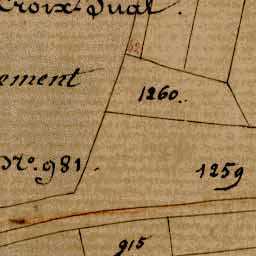 Croix Dual.
52
ement
1260.
N.º 981.
1259
915